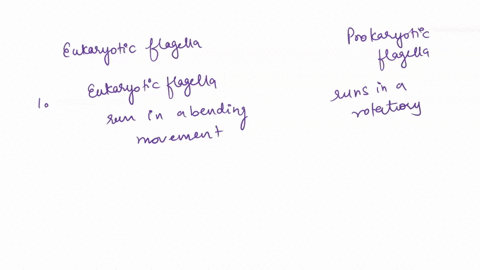 Eukaryotic flagella
Prokaryotic
flagella
1. Eukaryotic flagella
run in a bending
movement
runs in a
rotatiory